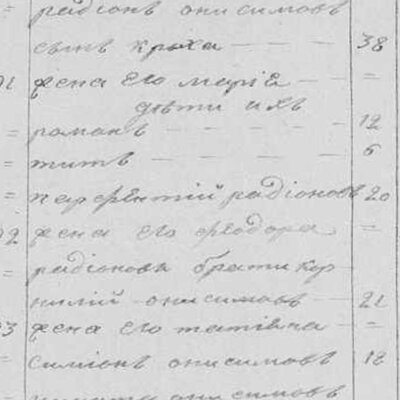 радіонъ онисимовъ
сынъ кроха — — — 38
жена его марія — =
дѣти ихъ
= романъ — — — 12
= титъ — — — — 6
= парфентій радіоновъ 20
жена его феодора =
= радіоновъ братъ кор
= нилій онисимовъ — 21
жена его татіана — =
= симіонъ онисимовъ 18
онисимовъ